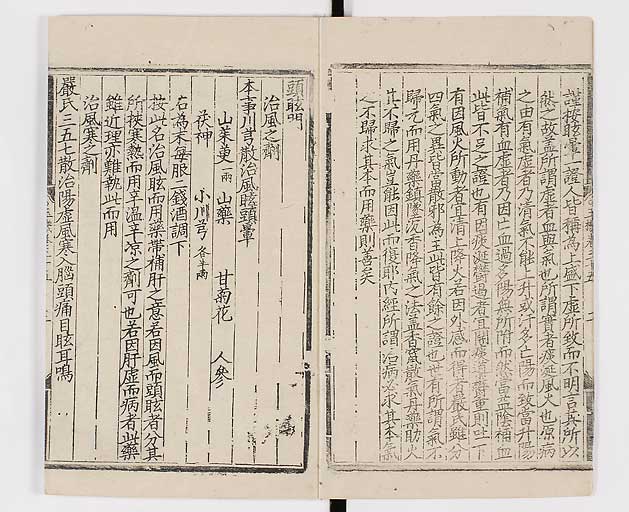 謹按眩暈一證人皆稱為上盛下虛所致而不明言其所以
然之故盖所謂虛者血與氣也所謂實者痰涎風火也原病
之由有氣虛者乃清氣不能上升或汗多亡陽而致當升陽
補氣有血虛者乃因亡血過多陽無所附而然當益陰補血
此皆不足之證也有因痰涎鬱遏者宜開痰導鬱重則吐下
有因風火所動者宜清上降火若因外感而得者嚴氏雖分
四氣之異皆當散邪為主此皆有餘之證也世有所謂氣不
歸元而用丹藥鎮墜沉香降氣之法盖香竄散氣丹藥助火
其不歸之氣豈能因此而復耶內經所謂治病必求其本氣
之不歸求其本而用藥則善矣
頭眩門
治風之劑
本事川芎散治風眩頭暈
山茱萸一兩 山藥 甘菊花 人參
茯神 小川芎各半兩
右為末每服二錢酒調下
按此名治風眩而用藥帶補肝之意若因風而頭眩者分其
所挾寒熱而用辛溫辛凉之劑可也若因肝虛而病者此藥
雖近理亦難執此而用
治風寒之劑
嚴氏三五七散治陽虛風寒入腦頭痛目眩耳鳴